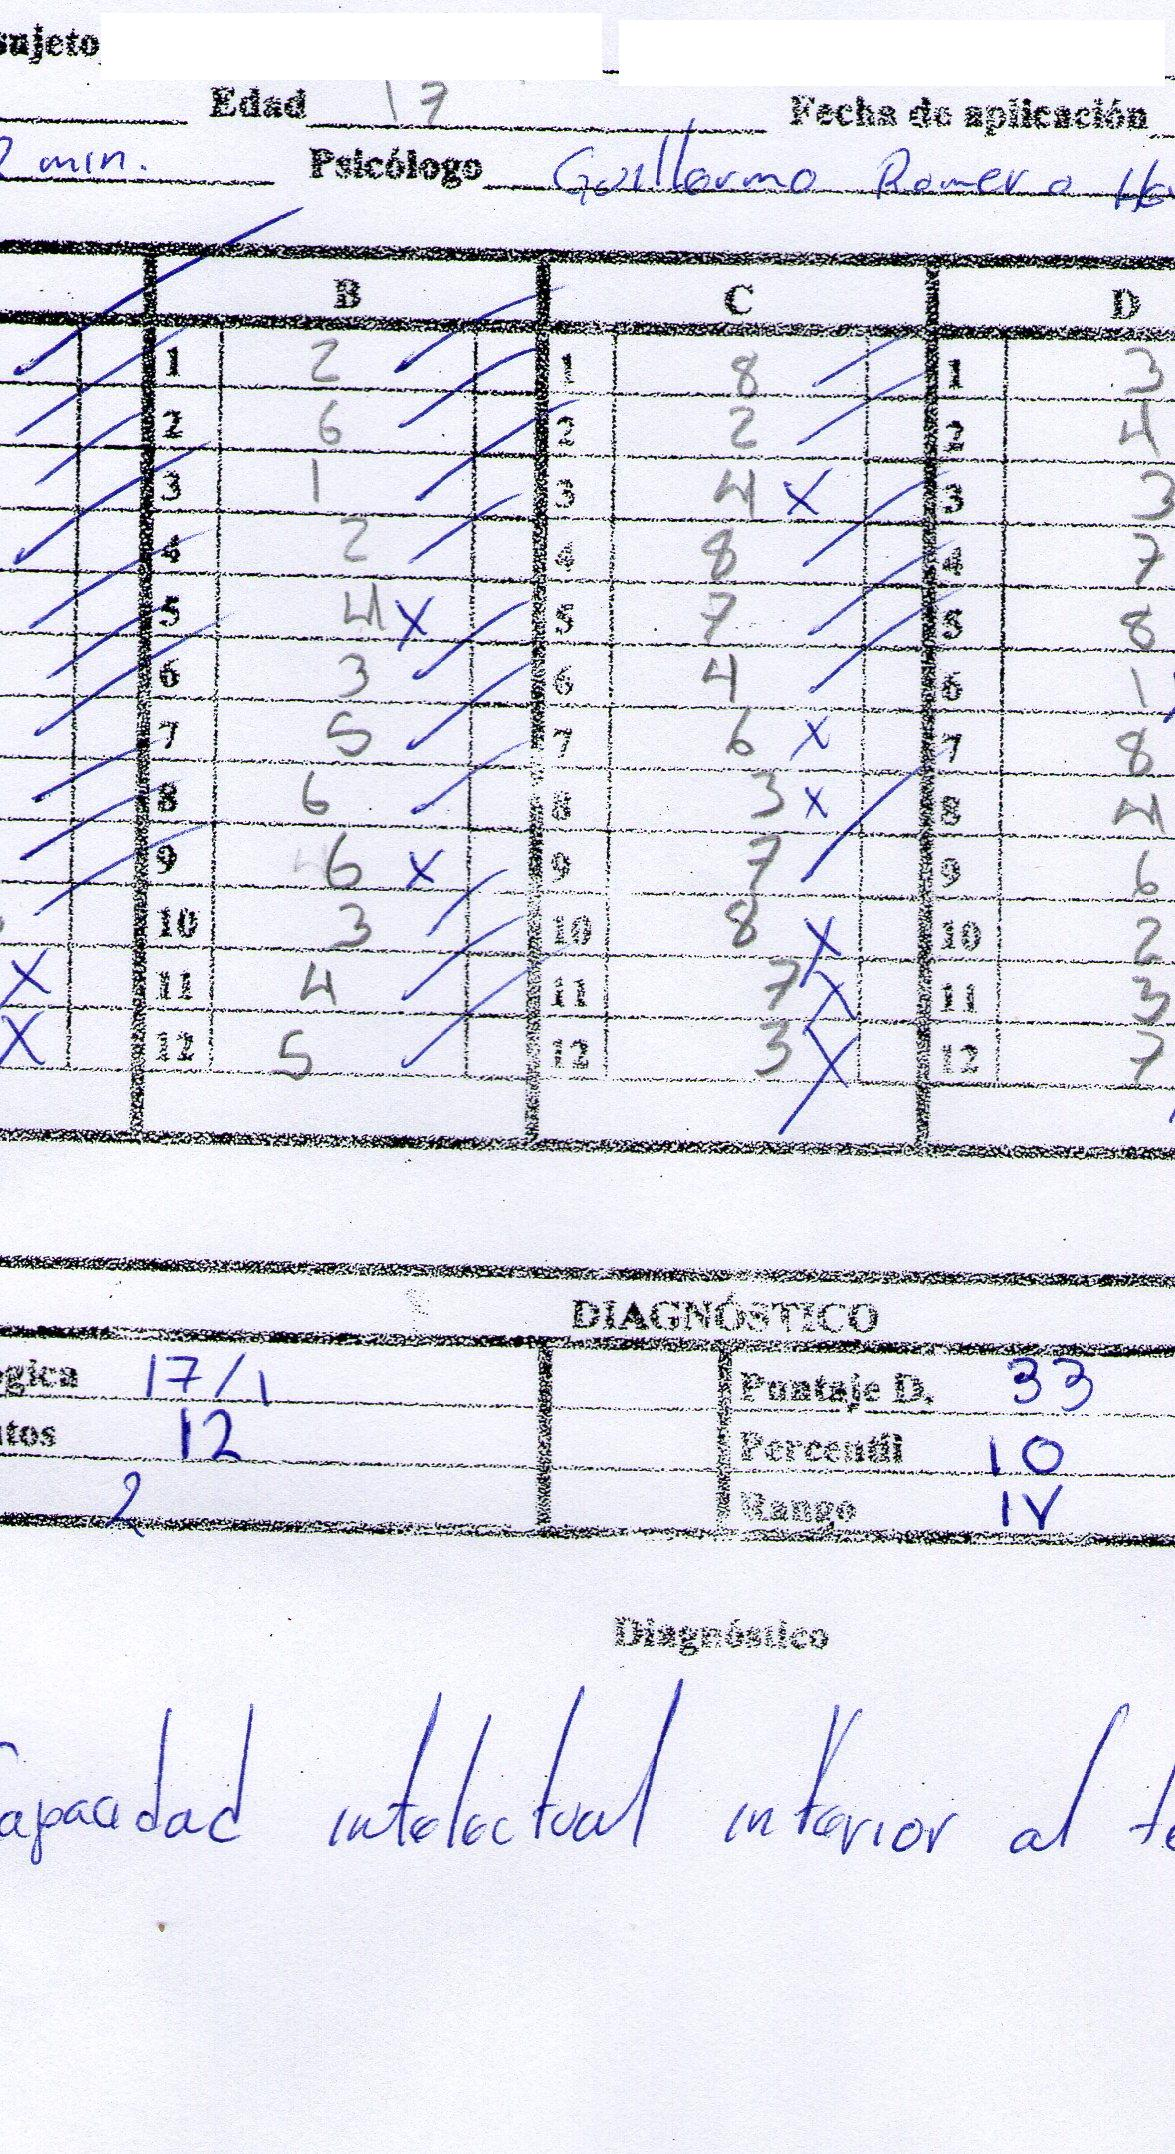 sujeto
Edad 17 Fecha de aplicación
2 min. Psicólogo Guillermo Romero
B C D
1 2 1 8 1 3
2 6 2 2 2 4
3 1 3 4 X 3 3
4 2 4 8 4 7
5 4 X 5 7 5 8
6 3 6 4 6 1
7 5 7 6 X 7 8
8 6 8 3 X 8 4
9 6 X 9 7 9 6
10 3 10 8 X 10 2
X 11 4 11 7 X 11 3
X 12 5 12 3 X 12 7
DIAGNÓSTICO
ógica 17/1 Puntaje D. 33
tos 12 Percentil 10
2 Rango IV
Diagnóstico
capacidad intelectual inferior al té